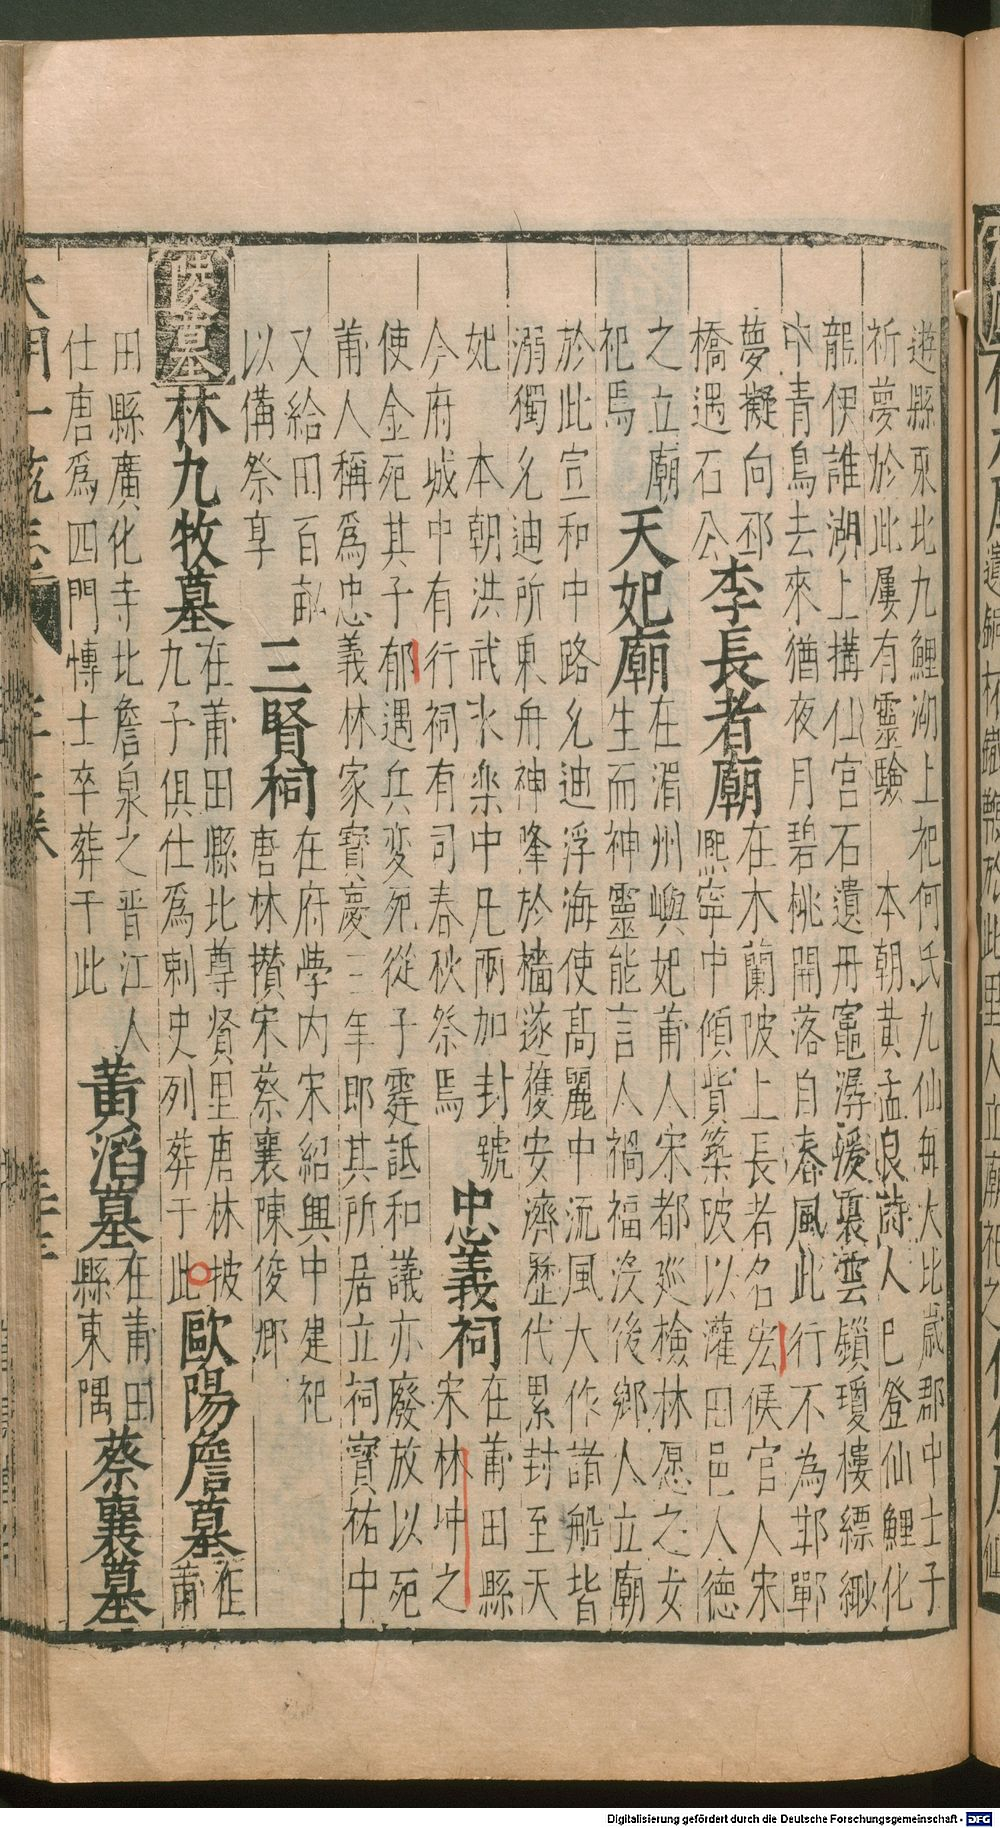 遊縣東北九鯉湖上祀何氏九仙每大比歲郡中士子
祈夢於此屢有靈驗 本朝黃孟良詩人巳登仙鯉化
龍伊誰湖上搆仙宮石遺丹竈潺湲裏雲鎖瓊樓縹緲
中青鳥去來猶夜月碧桃開落自春風此行不為邯鄲
夢擬向邳
橋遇石公
李長者廟
在木蘭陂上長者名宏候官人宋
熙寧中傾貲築陂以灌田邑人德
之立廟
祀焉
天妃廟
在湄州嶼妃莆人宋都巡檢林愿之女
生而神靈能言人禍福沒後鄉人立廟
於此宣和中路允迪浮海使高麗中流風大作諸船皆
溺獨允迪所乘舟神降於檣遂獲安濟歷代累封至天
妃 本朝洪武永樂中凡兩加封號
今府城中有行祠有司春秋祭焉
忠義祠
在莆田縣
宋林冲之
使金死其子郁遇兵變死從子霆詆和議亦廢放以死
莆人稱為忠義林家寶慶三年即其所居立祠寶祐中
又給田百畝
以備祭享
三賢祠
在府學內宋紹興中建祀
唐林攢宋蔡襄陳俊卿
陵墓
林九牧墓
在莆田縣北尊賢里唐林披
九子俱仕為刺史列葬于此
歐陽詹墓
在
莆
田縣廣化寺北詹泉之晉江人
仕唐為四門博士卒葬于此
黃滔墓
在莆田
縣東隅
蔡襄墓
Digitalisierung gefördert durch die Deutsche Forschungsgemeinschaft - DFG